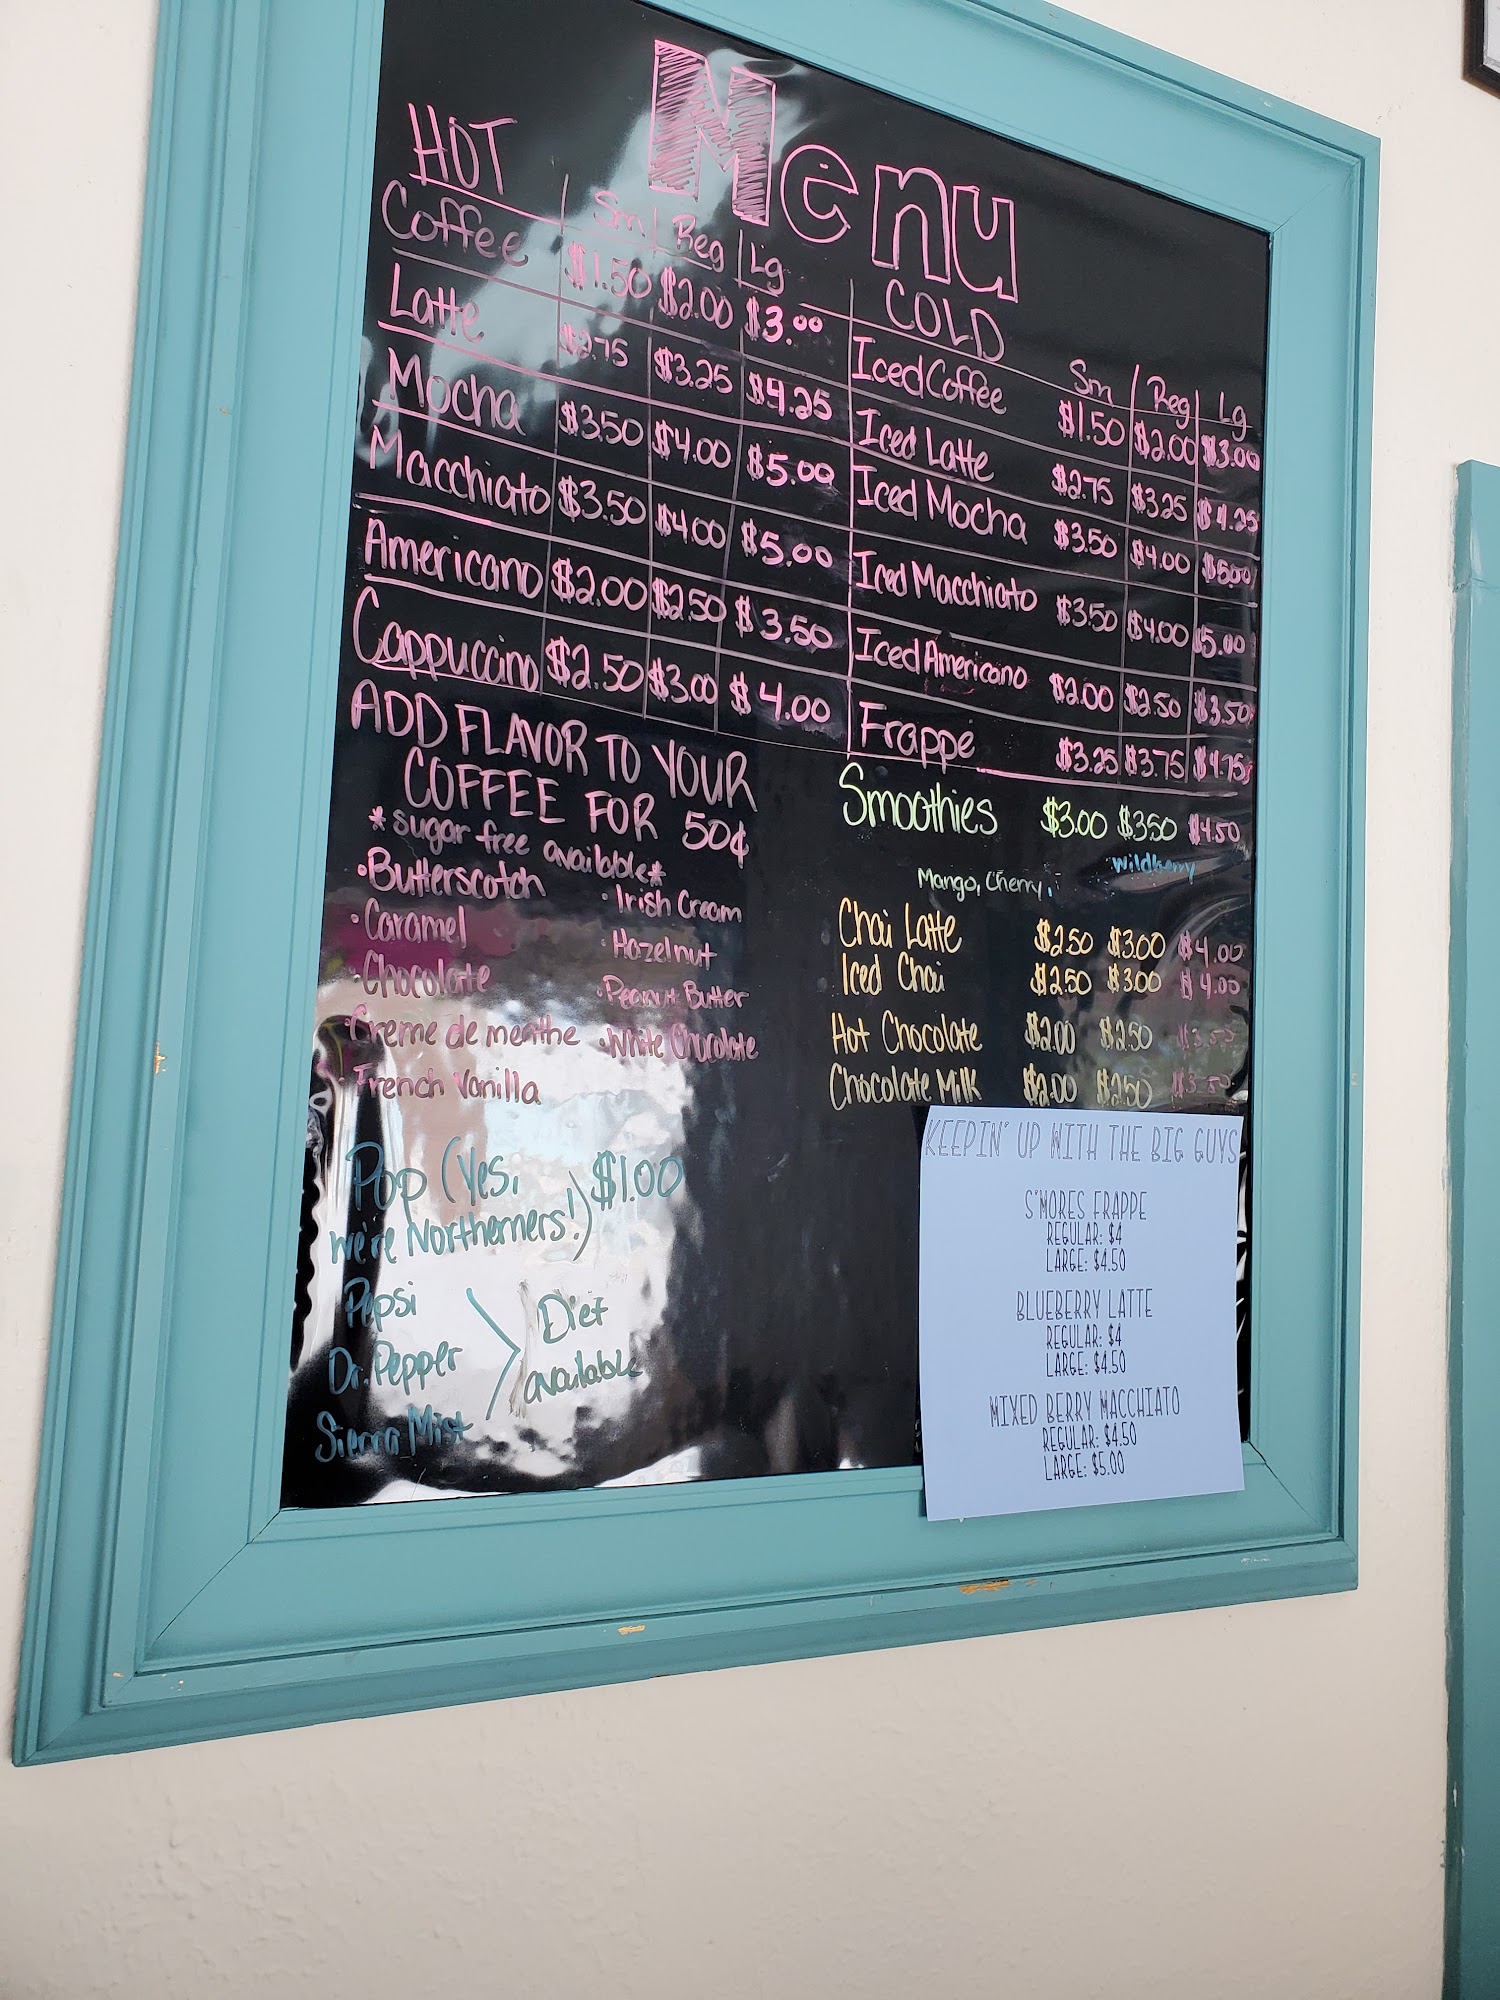 Menu
HOT
Sm Reg Lg
Coffee $1.50 $2.00 $3.00
Latte $2.75 $3.25 $4.25
Mocha $3.50 $4.00 $5.00
Macchiato $3.50 $4.00 $5.00
Americano $2.00 $2.50 $3.50
Cappuccino $2.50 $3.00 $4.00
ADD FLAVOR TO YOUR
COFFEE FOR 50¢
*sugar free available*
•Butterscotch
•Caramel
•Chocolate
•Creme de menthe
•French Vanilla
•Irish Cream
•Hazelnut
•Peanut Butter
•White Chocolate
Pop (Yes, $1.00
we're Northerners!)
Pepsi
Dr. Pepper
Sierra Mist
Diet
available
COLD
Sm Reg Lg
Iced Coffee $1.50 $2.00 $3.00
Iced Latte $2.75 $3.25 $4.25
Iced Mocha $3.50 $4.00 $5.00
Iced Macchiato $3.50 $4.00 $5.00
Iced Americano $2.00 $2.50 $3.50
Frappe $3.25 $3.75 $4.75
Smoothies $3.00 $3.50 $4.50
Mango, Cherry, Wildberry
Chai Latte $2.50 $3.00 $4.00
Iced Chai $2.50 $3.00 $4.00
Hot Chocolate $2.00 $2.50 $3.50
Chocolate Milk $2.00 $2.50 $3.50
KEEPIN' UP WITH THE BIG GUYS
S'MORES FRAPPE
REGULAR: $4
LARGE: $4.50
BLUEBERRY LATTE
REGULAR: $4
LARGE: $4.50
MIXED BERRY MACCHIATO
REGULAR: $4.50
LARGE: $5.00